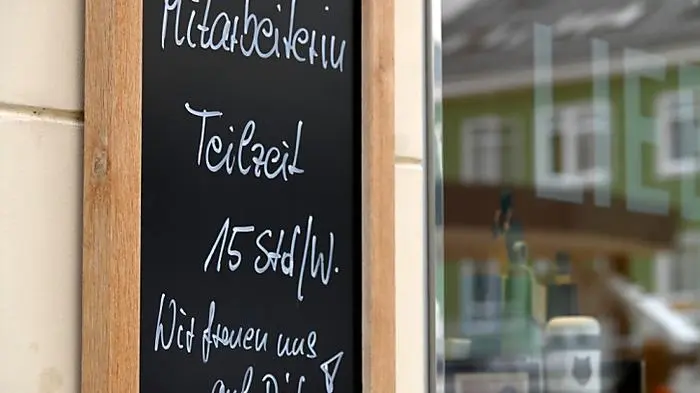 Mitarbeiterin
Teilzeit
15 Std/W.
Wir freuen uns
auf Dich
LIE